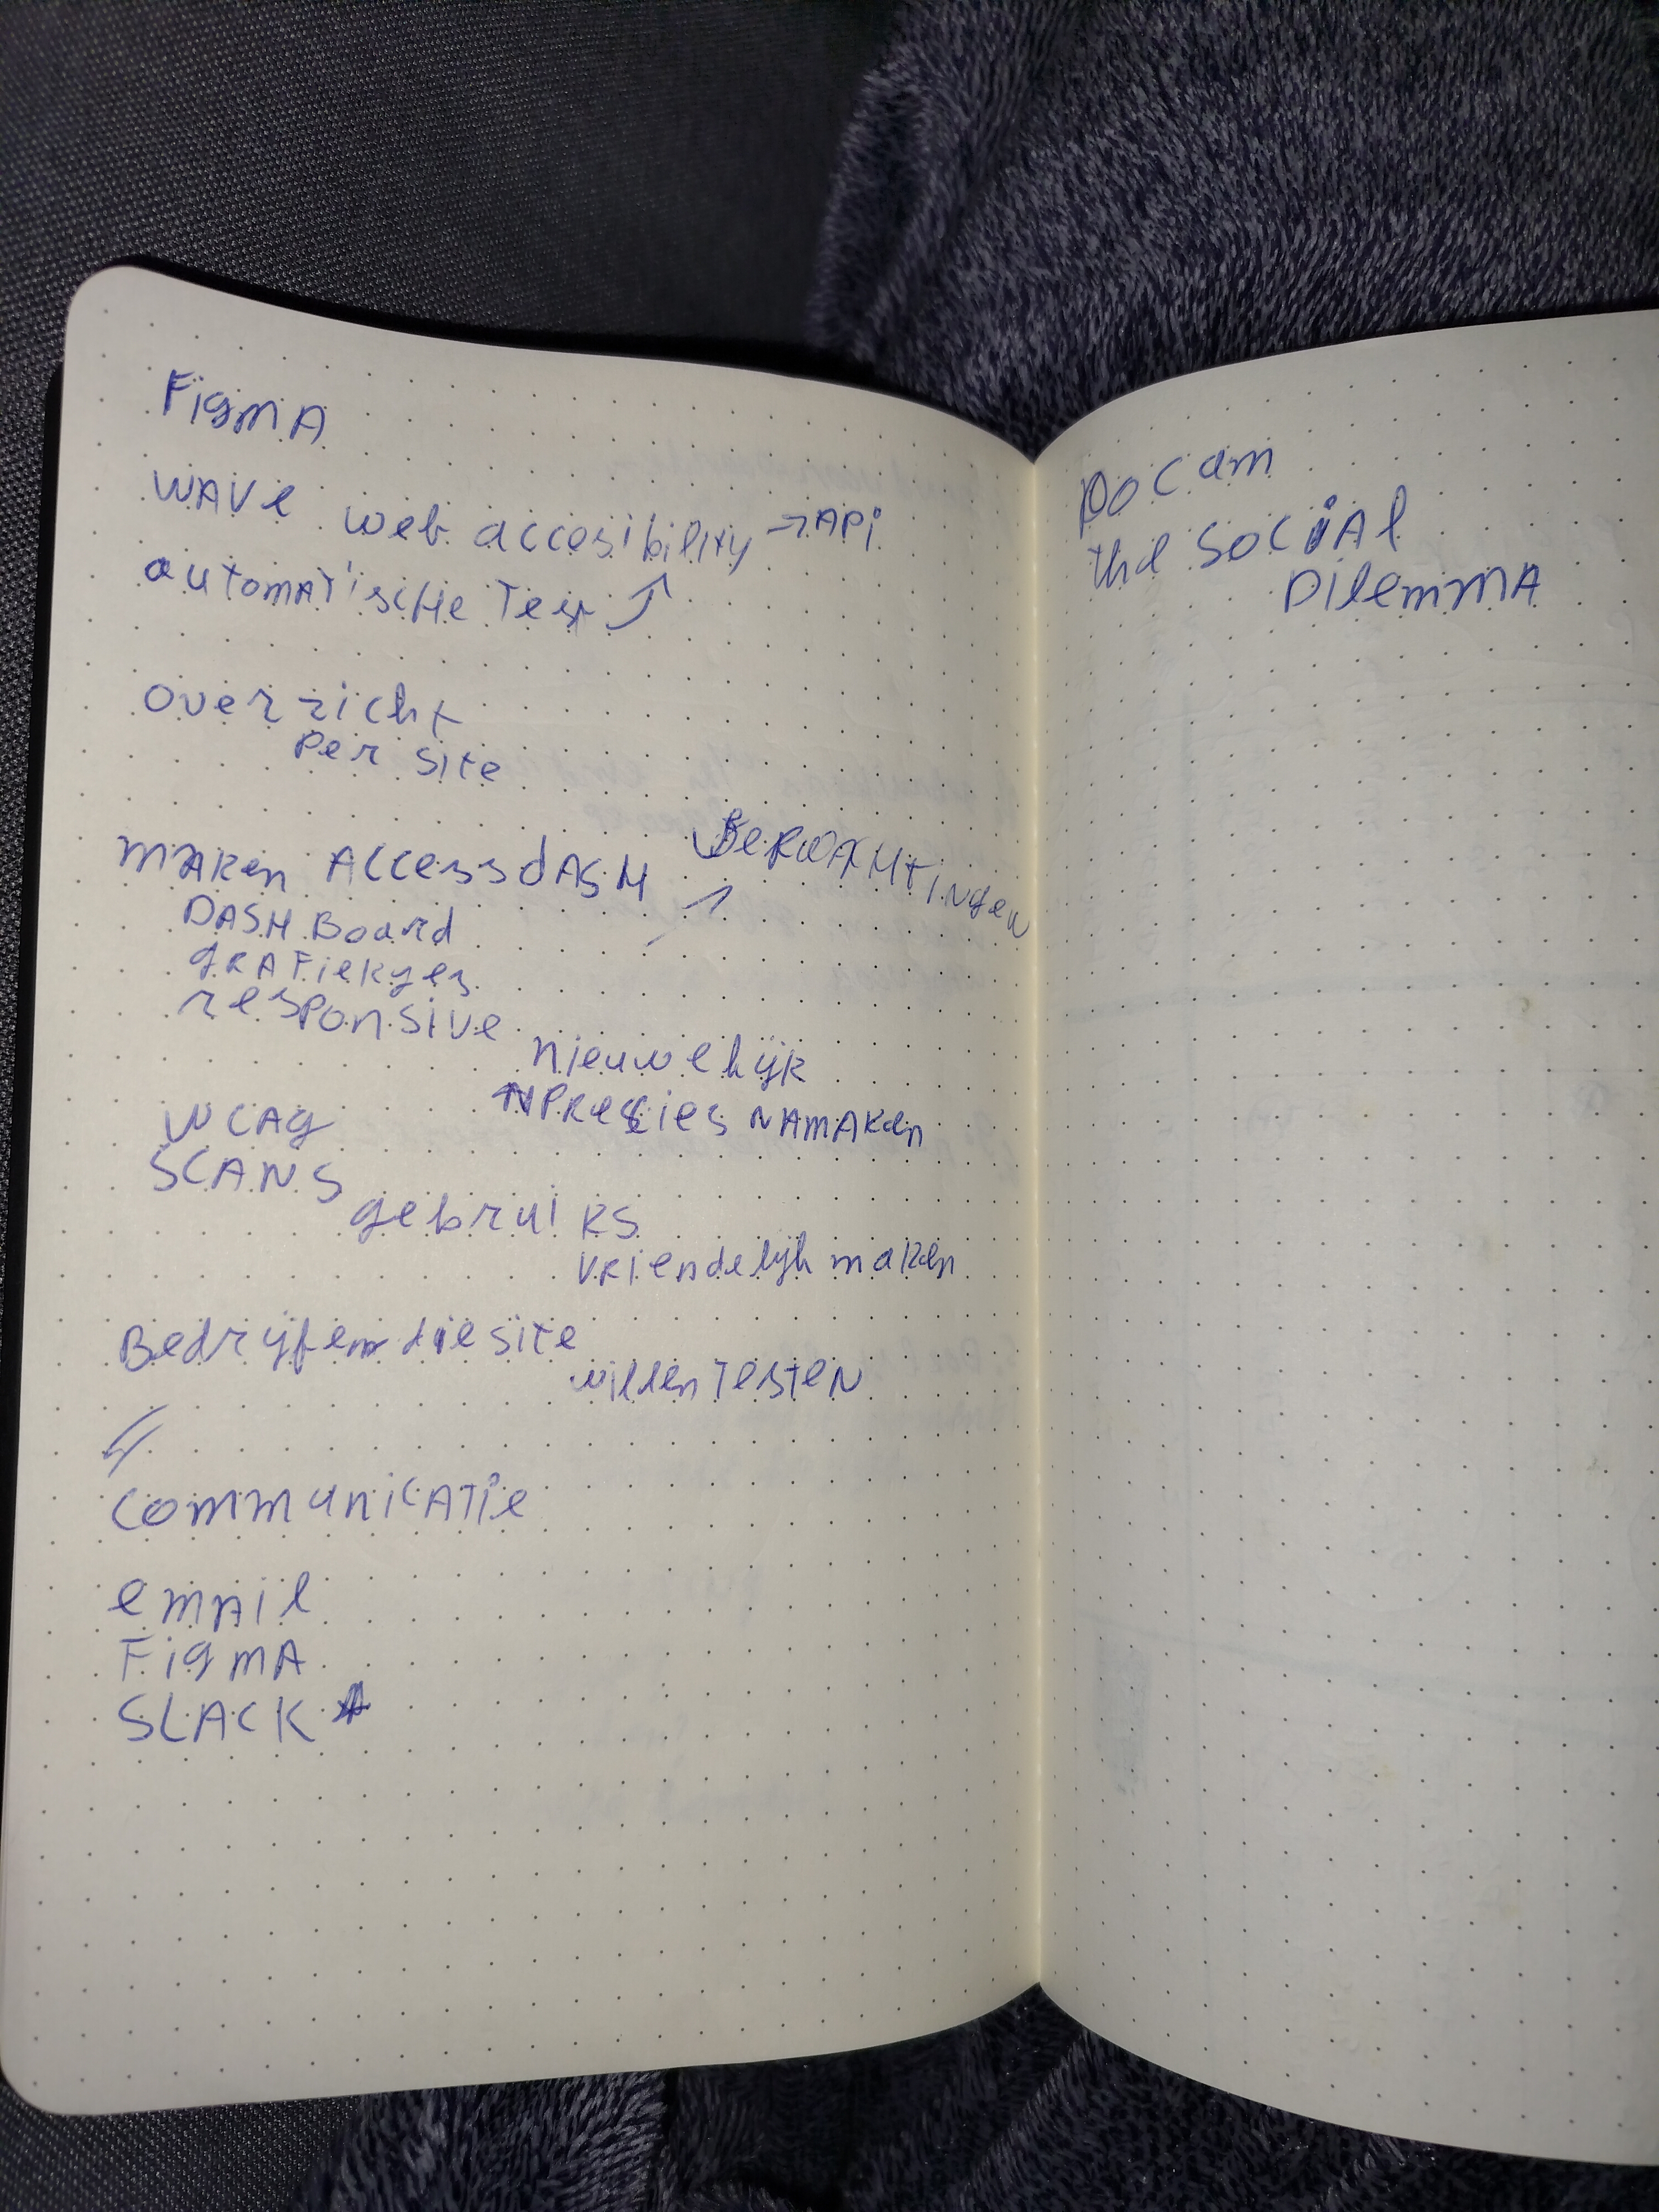 Figma
wave web accesibility → API
automatische Test
overzicht
per site
maken Accessdash
verwachtingen
DASHBoard
grafiekjes
responsive
nieuwelijk
precies namaken
WCAG
SCANS
gebruiks
vriendelijk maken
Bedrijfen die site
willen testen
communicatie
email
Figma
SLACK
Docum
the social
Dilemma